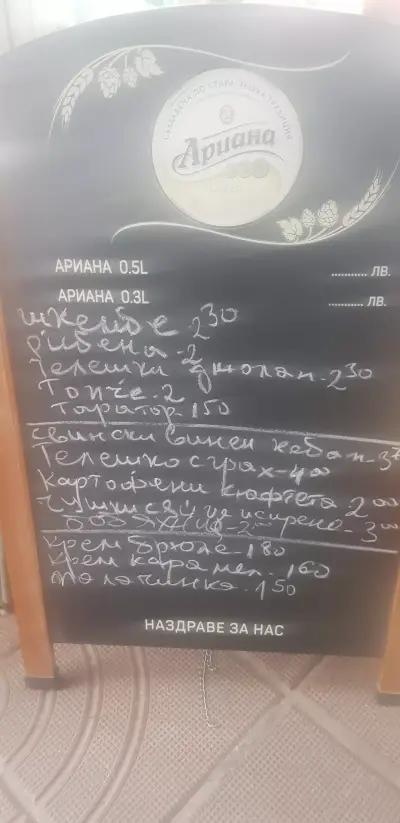 СЪЗДАДЕНА ПО СТАРА
Ариана
АРИАНА 0.5L ........... ЛВ.
АРИАНА 0.3L ........... ЛВ.
шкембе 2 30
рибена - 2
Телешки джолан - 2 30
Топче - 2
Таратор 150
свински винен кебап - 3
Телешко с грах - 4 00
Картофени кюфтета 2 00
Чушки с яйца и сирене - 3 00
- 2
крем брюле 180
крем карамел 160
палачинка 150
НАЗДРАВЕ ЗА НАС